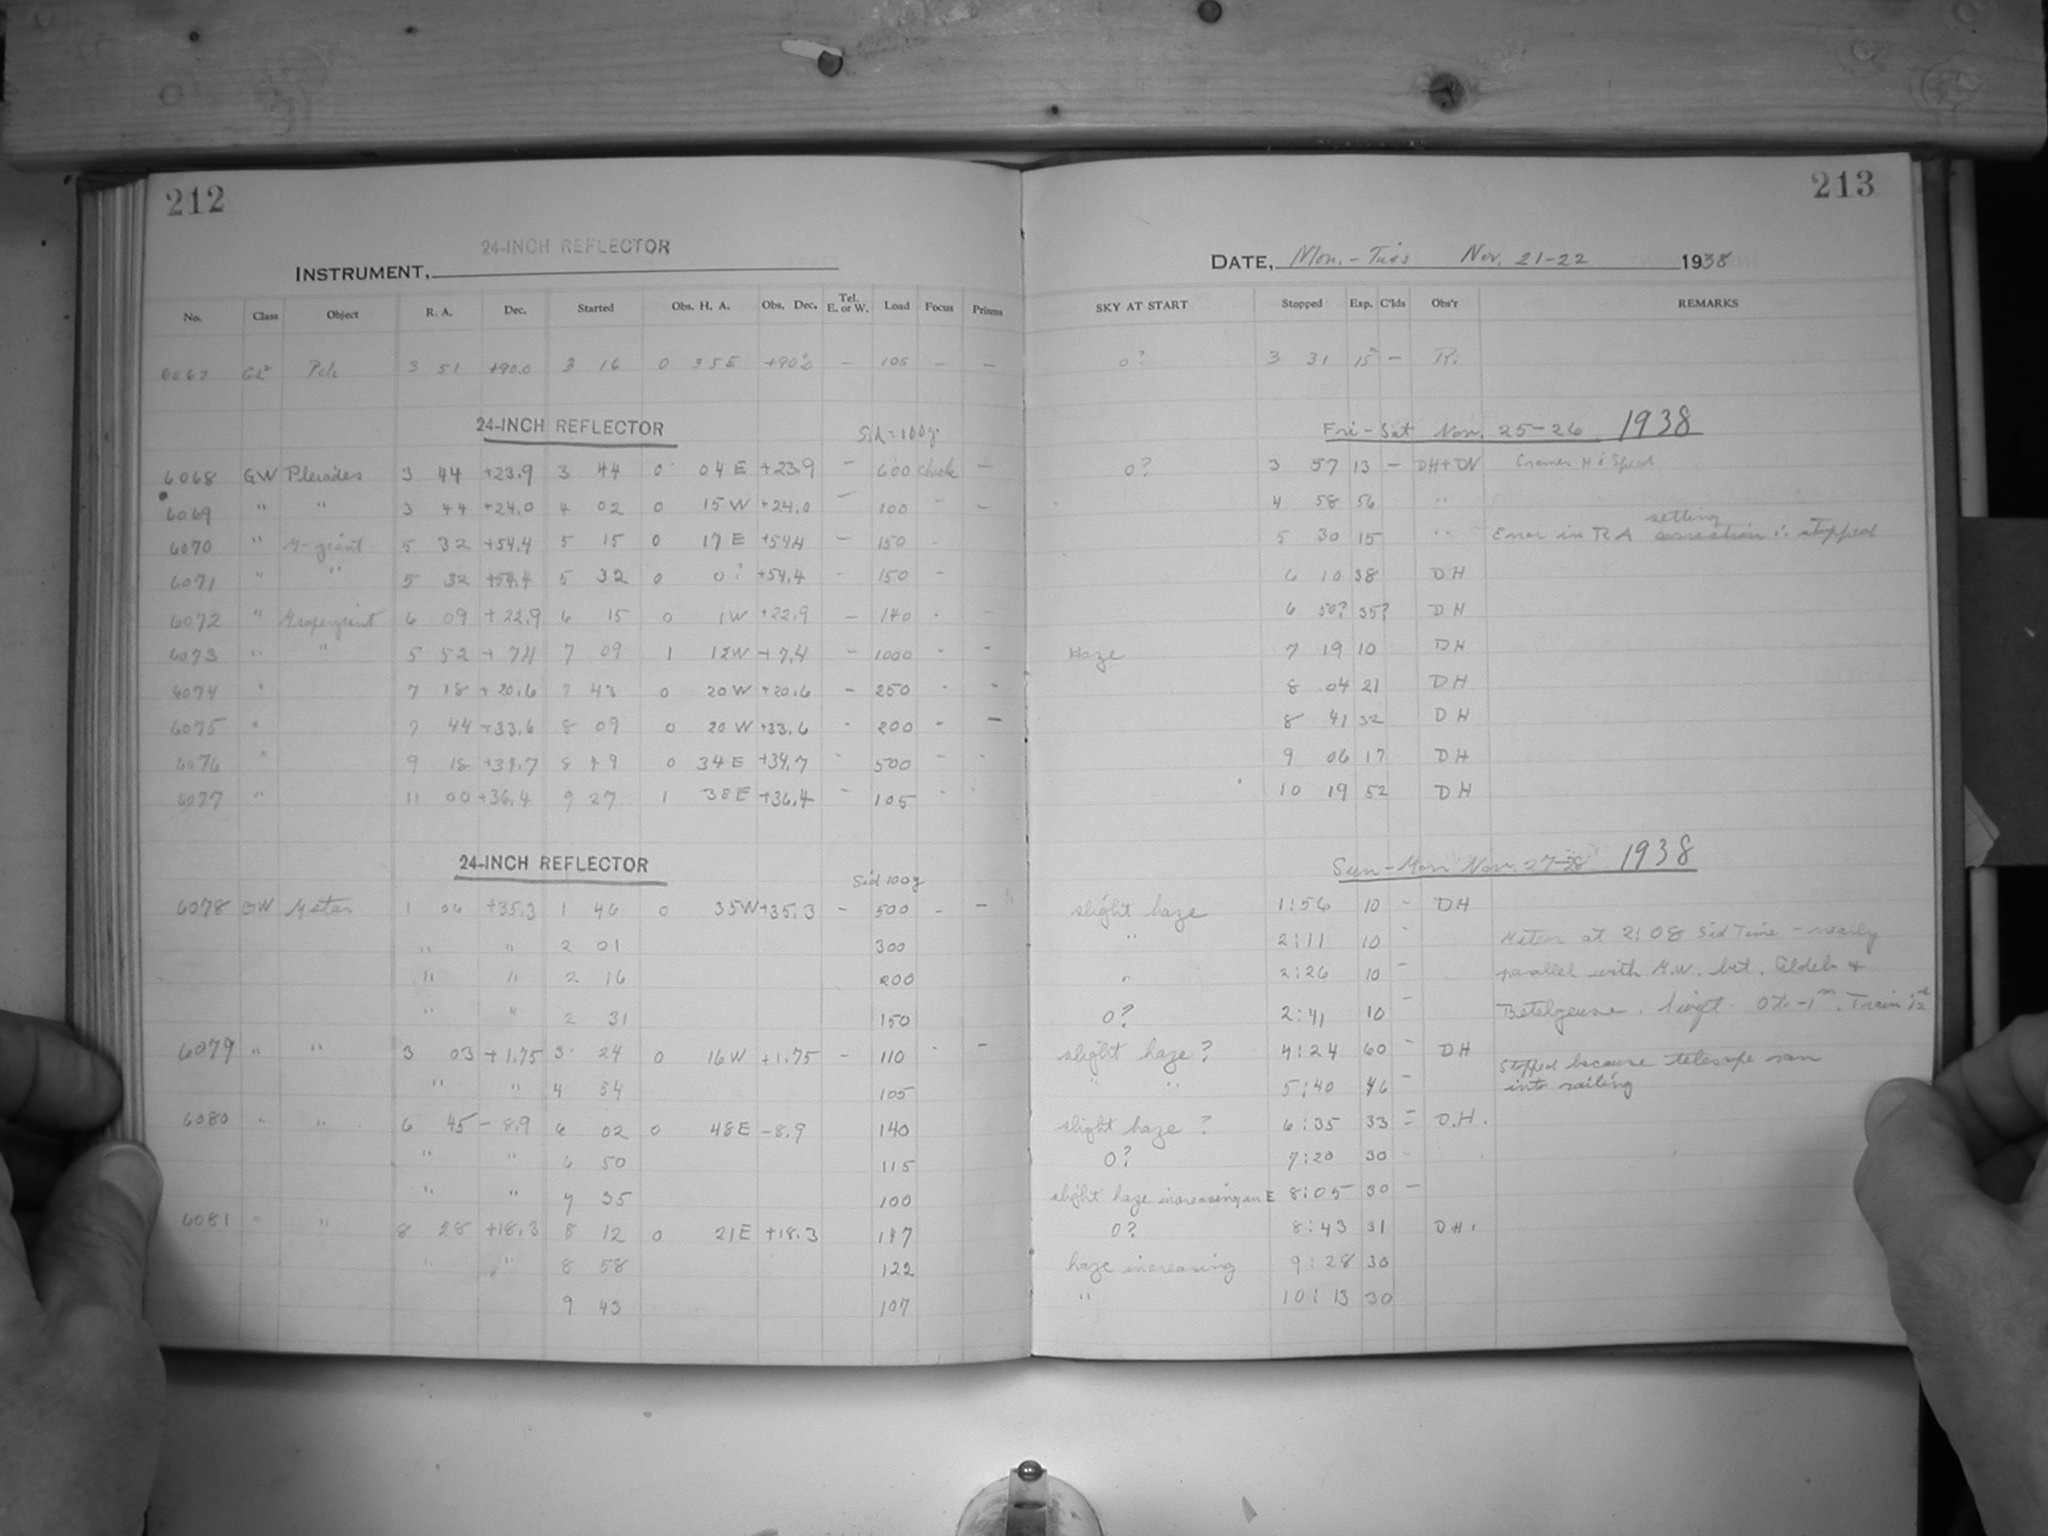 212
213
24-INCH REFLECTOR
INSTRUMENT,
DATE, Mon.-Tues Nov. 21-22 1938
No. Class Object R. A. Dec. Started Obs. H. A. Obs. Dec. Tel. E. or W. Load Focus Prisms SKY AT START Stopped Exp. C'lds Obs'r REMARKS
6067 Pole 3 51 +90.0 3 16 0 35E +90.0 — 105 — — 0? 3 31 15 — Ri
24-INCH REFLECTOR Sid=100g Fri-Sat Nov. 25-26 1938
6068 GW Pleiades 3 44 +23.9 3 44 0 04E +23.9 — 600 — 0? 3 57 13 — DH+DN Cramer Hi Speed
6069 " " 3 44 +24.0 4 02 0 15W +24.0 — 100 - — 4 58 56 "
6070 " M-giant 5 32 +54.4 5 15 0 17E +54.4 — 150 - 5 30 15 " Error in RA setting correction ∴ stopped
6071 " " 5 32 +54.4 5 32 0 0? +54.4 - 150 - 6 10 38 DH
6072 " M supergiant 6 09 +22.9 6 15 0 1W +22.9 — 140 - — 6 50? 35? DH
6073 " " 5 52 +7.4 7 09 1 12W +7.4 — 1000 - - Haze 7 19 10 DH
6074 " 7 18 +20.6 7 43 0 20W +20.6 — 250 - - 8 04 21 DH
6075 " 7 44 +33.6 8 09 0 20W +33.6 - 200 - — 8 41 32 DH
6076 " 9 18 +34.7 8 49 0 34E +34.7 - 500 - - 9 06 17 DH
6077 " 11 00 +36.4 9 27 1 38E +36.4 - 105 - - 10 19 52 DH
24-INCH REFLECTOR Sid 100g Sun-Mon Nov. 27-28 1938
6078 GW M star 1 06 +35.3 1 46 0 35W +35.3 — 500 - — slight haze 1:56 10 - DH
" " 2 01 300 " 2:11 10 - Meteor at 2:08 Sid Time - nearly
" " 2 16 200 " 2:26 10 - parallel with M.W. bet. Aldeb +
" " 2 31 150 0? 2:41 10 - Betelgeuse. Swift
6079 " " 3 03 +1.75 3 24 0 16W +1.75 — 110 - — slight haze? 4:24 60 - DH Stopped because telescope ran
" " 4 54 105 " " 5:40 46 - into railing
6080 " " 6 45 -8.9 6 02 0 48E -8.9 140 slight haze? 6:35 33 - D.H.
" " 6 50 115 0? 7:20 30 -
" " 7 35 100 slight haze increasing in E 8:05 30 —
6081 " " 8 28 +18.3 8 12 0 21E +18.3 147 0? 8:43 31 DH.
" " 8 58 122 haze increasing 9:28 30
9 43 107 " 10:13 30